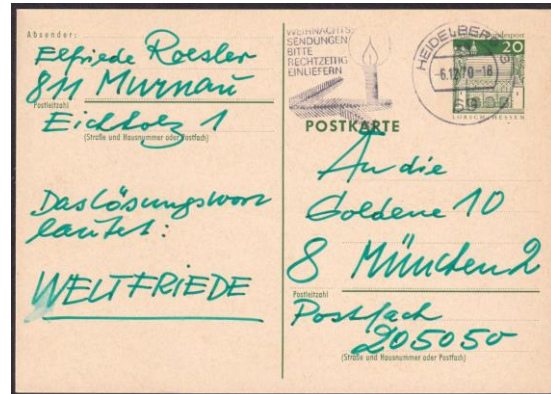 Absender:
Elfriede Roesler
811 Murnau
Postleitzahl
Eichholz 1
(Straße und Hausnummer oder Postfach)
Das Lösungswort
lautet:
WELTFRIEDE
WEIHNACHTS-
SENDUNGEN
BITTE
RECHTZEITIG
EINLIEFERN
HEIDELBERG
-6.12.70-18
69
20
LORSCH HESSEN
POSTKARTE
An die
Goldene 10
8 München 2
Postleitzahl
Postfach
205050
(Straße und Hausnummer oder Postfach)